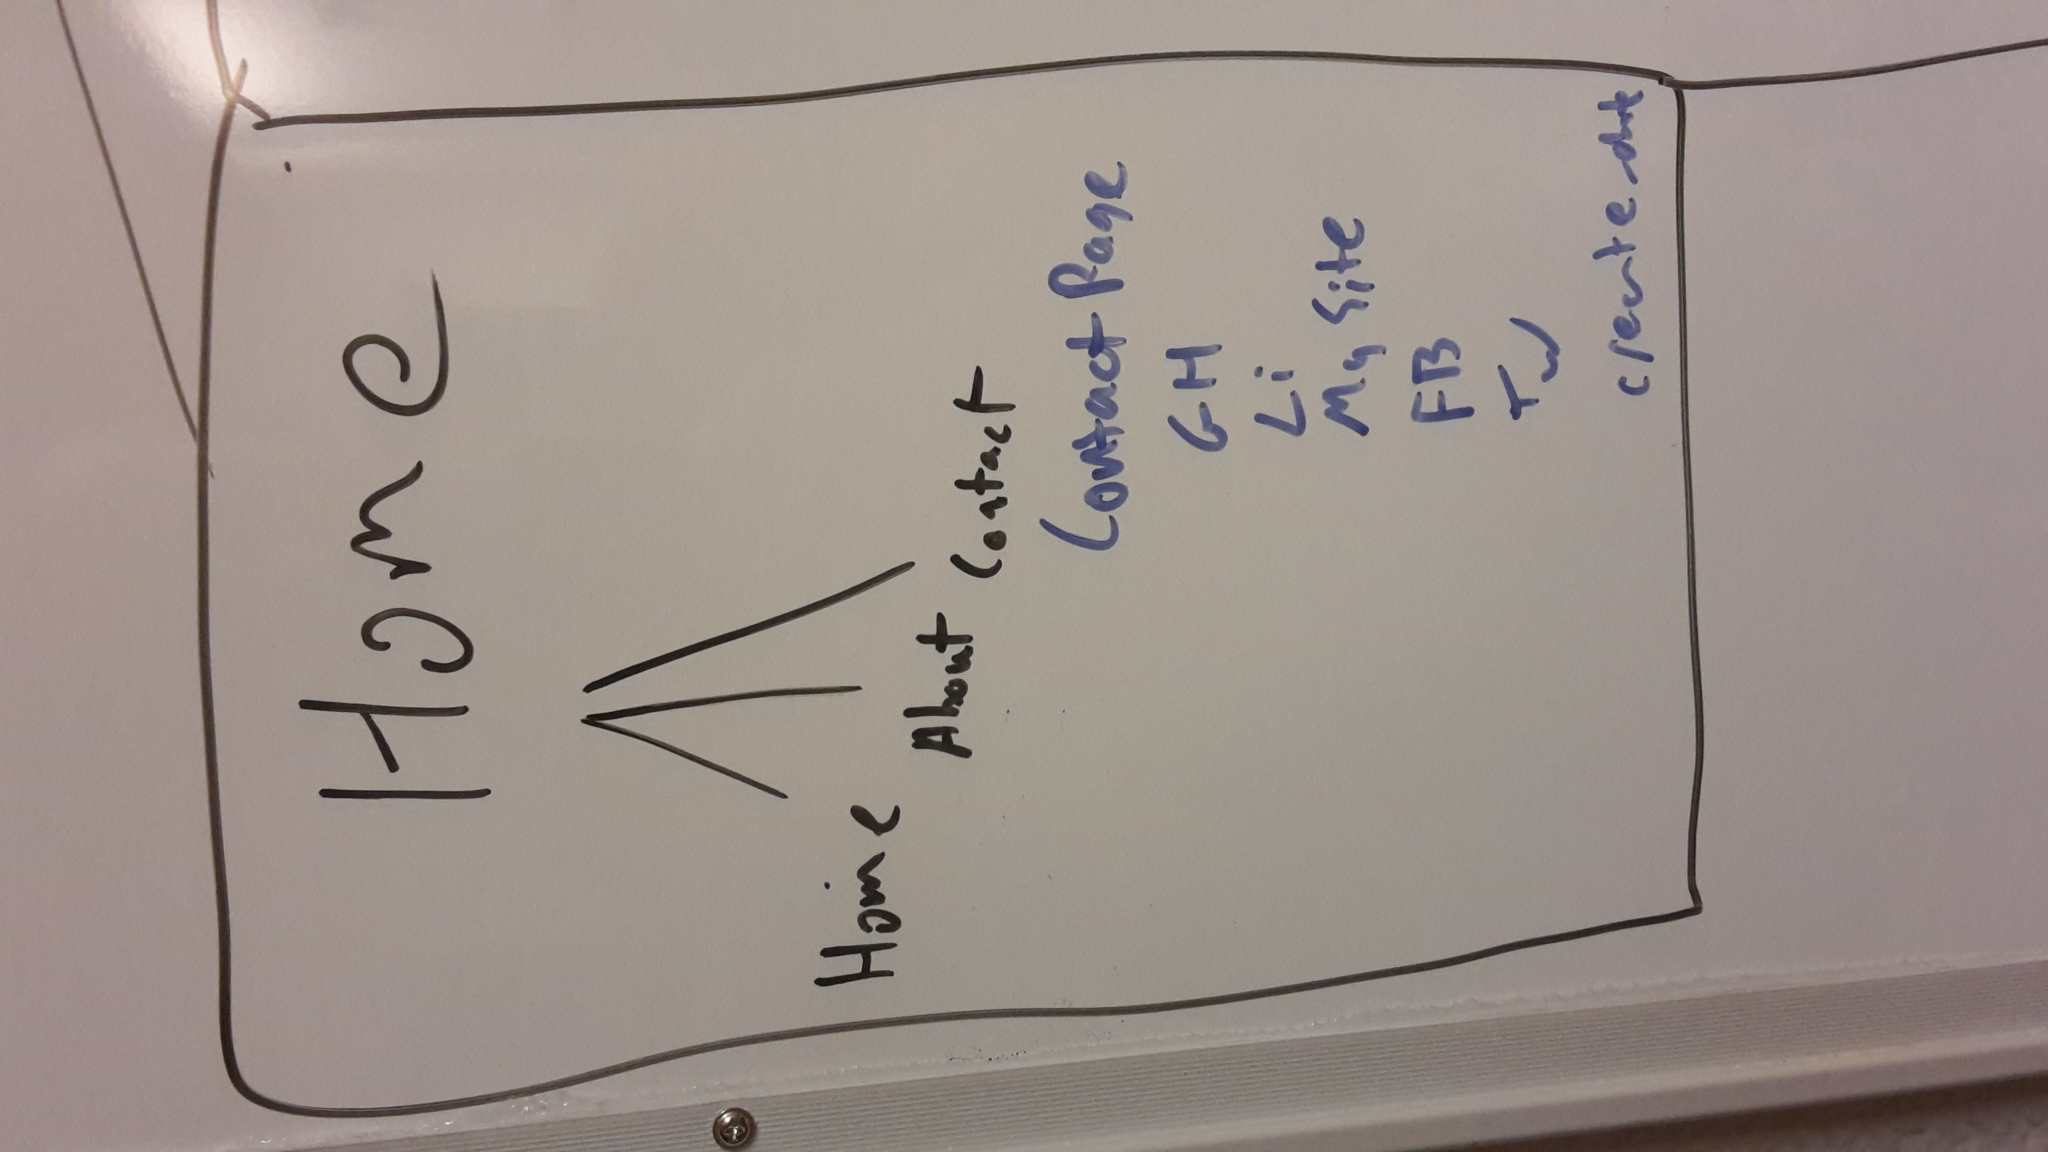 Home
Home
About
Contact
Contact Page
GH
Li
My Site
FB
Tw
create-date